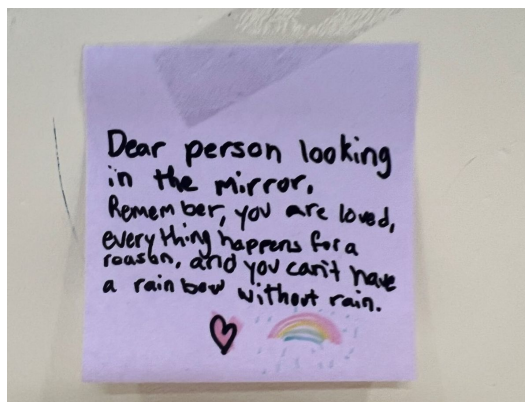 Dear person looking
in the mirror,
Remember, you are loved,
everything happens for a
reason, and you can't have
a rainbow without rain.